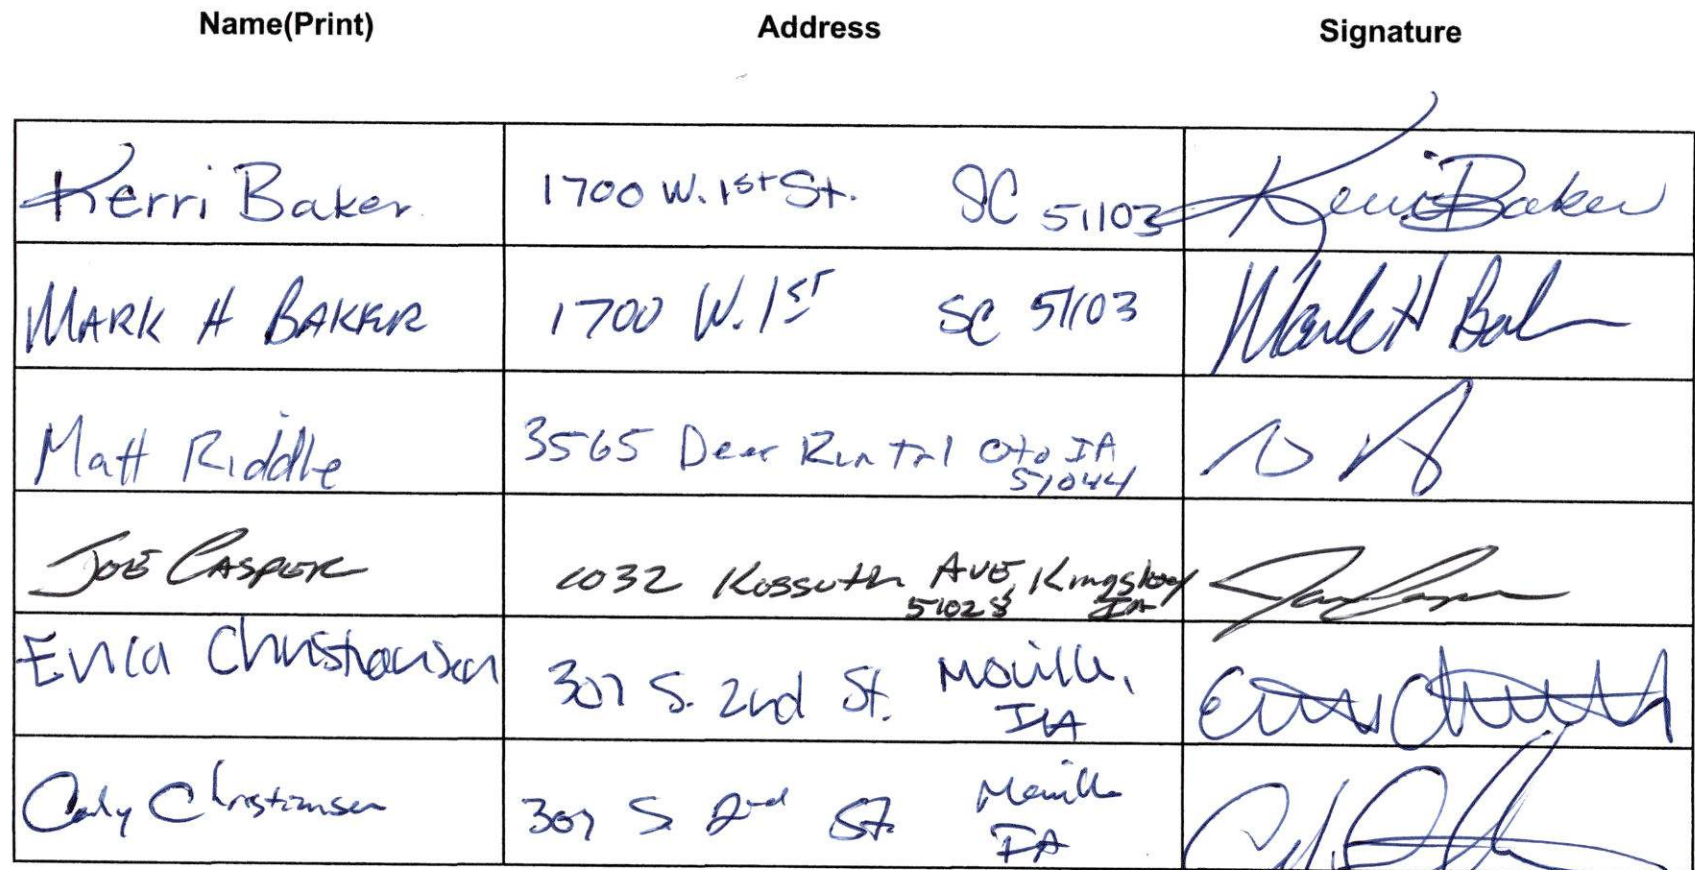 Name(Print) Address Signature
Kerri Baker 1700 W. 1st St. SC 51103 Kerri Baker
MARK H BAKER 1700 W. 1ST SC 51103 Mark H Bak
Matt Riddle 3565 Deer Run Trl Oto IA
51044
JOE CASPER 1032 Kossuth AVE, Kingsley
51028 IA
Erica Christiansen 307 S. 2nd St. Moville,
IA
Cody Christiansen 307 S 2nd St. Moville
IA